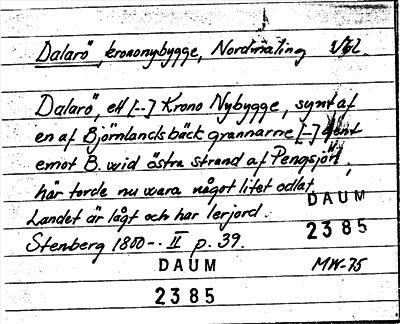 Dalarö, krononybygge, Nordmaling Vbl.
Dalarö, ett [--] Krono Nybygge, synt af
en af Björnlandsbäck grannarne [--]
emot B. wid östra strand af Pengsjön,
här torde nu wara något litet odlat.
Landet är lågt och har lerjord.
Stenberg 1800-. II p. 39.
DAUM
2385
MW-75
DAUM
2385